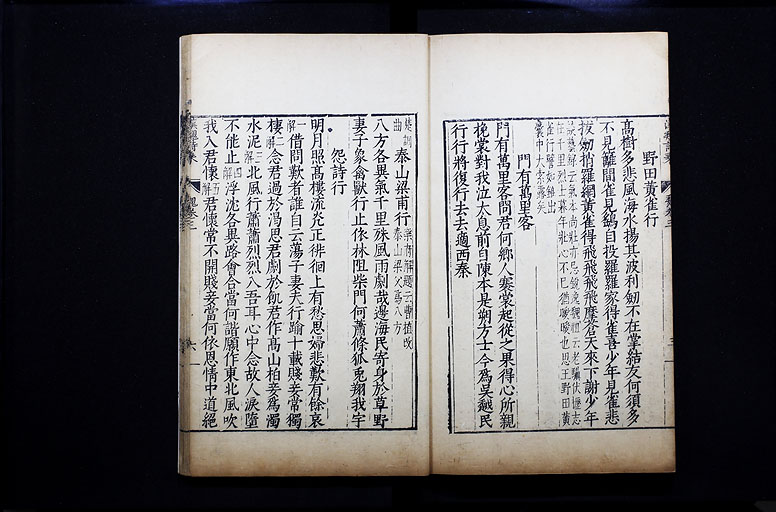 野田黃雀行
高樹多悲風海水揚其波利劒不在掌結友何須多
不見籬間雀見鷂自投羅羅家得雀喜少年見雀悲
拔劒捎羅網黃雀得飛飛飛飛摩蒼天來下謝少年
門有萬里客
門有萬里客問君何鄉人褰裳起從之果得心所親
挽裳對我泣太息前自陳本是朔方士今爲吳越民
行行將復行去去適西秦
泰山梁甫行
八方各異氣千里殊風雨劇哉邊海民寄身於草野
妻子象禽獸行止依林阻柴門何蕭條狐兎翔我宇
怨詩行
明月照高樓流光正徘徊上有愁思婦悲歎有餘哀
一解借問歎者誰自云蕩子妻夫行踰十載賤妾常獨
棲二解念君過於渴思君劇於飢君作高山柏妾爲濁
水泥三解北風行蕭蕭烈烈入吾耳心中念故人淚墮
不能止四解浮沈各異路會合當何諧願作東北風吹
我入君懷五解君懷常不開賤妾當何依恩情中道絕